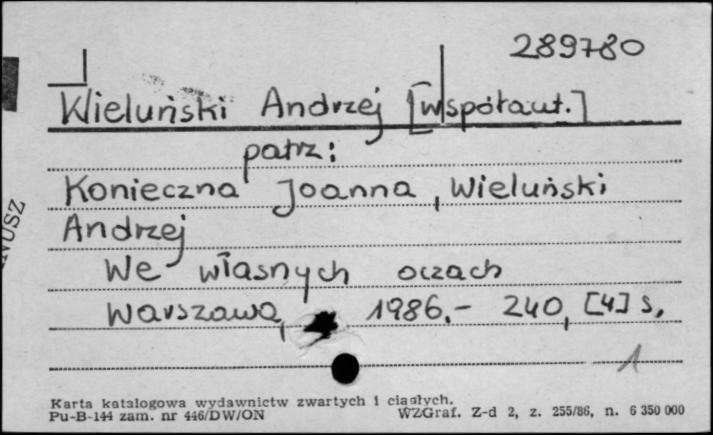 289780
Wieluński Andrzej [współaut.]
patrz:
Konieczna Joanna, Wieluński
Andrzej
We własnych oczach
Warszawa, 1986.- 240, [4] s.
1
Karta katalogowa wydawnictw zwartych i ciągłych.
Pu-B-144 zam. nr 446/DW/ON WZGraf. Z-d 2, z. 255/86, n. 6 350 000